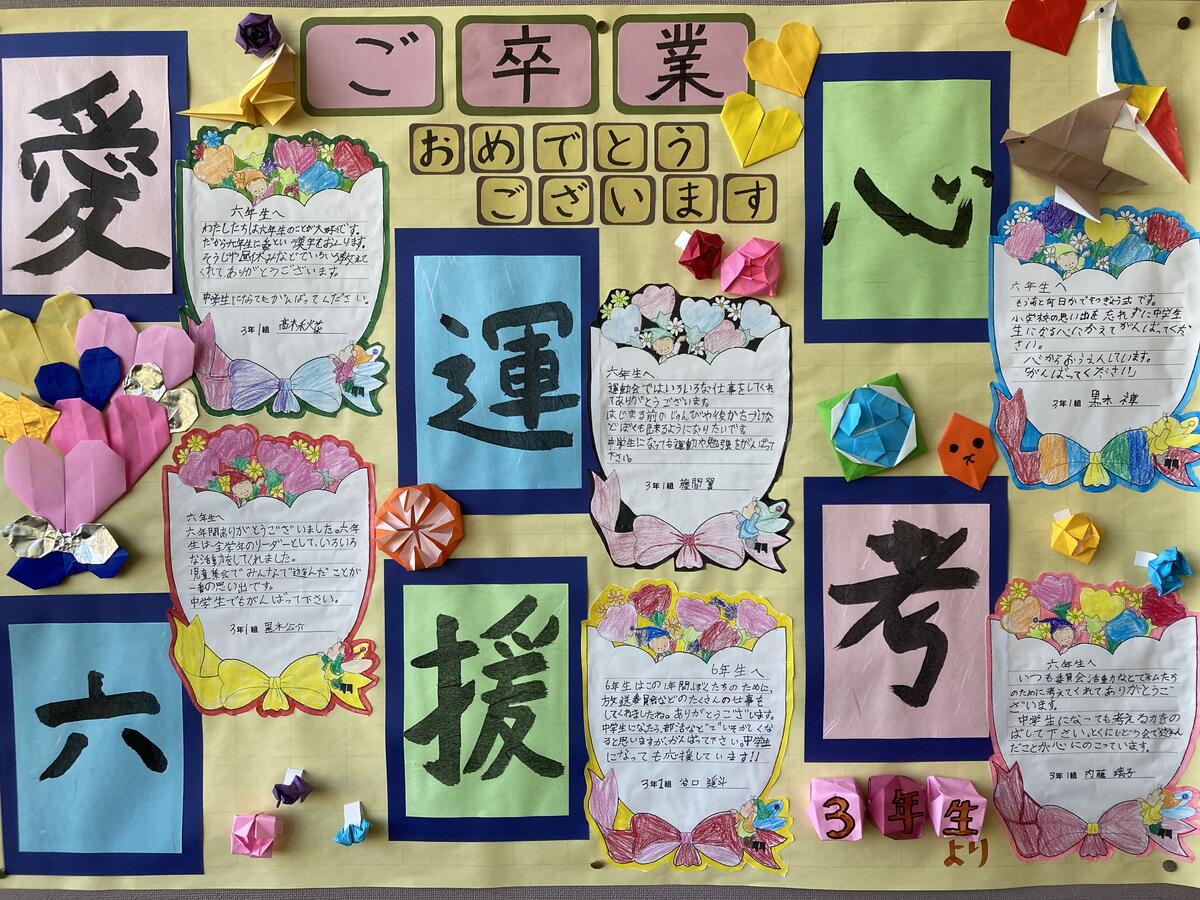 ご卒業
おめでとう
ございます
愛
六年生へ
わたしたちは六年生のことが大好きです。
だから六年生に愛という漢字をおくります。
そうじや昼休みなどでいろいろ教えて
くれてありがとうございます。
中学生になってもがんばってください。
3年1組
六
六年生へ
六年間ありがとうございました。六年
生は全学年のリーダーとして、いろいろ
な活動をしてくれました。
児童集会でみんなで遊んだことが
一番の思い出です。
中学生でもがんばって下さい。
3年1組 黒木公介
運
六年生へ
運動会ではいろいろな仕事をしてくれ
てありがとうございます。
はじまる前のじゅんびや後かたづけな
どぼくも出来るようになりたいです
中学生になっても運動や勉強をがんばって
下さい。
3年1組 篠間賢
援
6年生へ
6年生はこの1年間、ぼくたちのために、
放送委員会などのたくさんの仕事を
してくれましたね。ありがとうございます。
中学生になったら、部活などでいそがしくな
ると思いますが、がんばって下さい。中学生
になっても応援しています!!
3年1組 谷口
心
六年生へ
もうあと何日かでそつぎょう式です。
小学校の思い出を忘れずに中学生
生になる心にかえてがんばってくだ
さい。
心からおうえんしています。
「がんばってください」
3年1組 黒木
考
六年生へ
いつも委員会活動などで私たち
のために考えてくれてありがとうご
ざいます。
中学生になっても考える力をの
ばして下さい。とくにしどう会で遊ん
だことが心にのこっています。
3年1組 内藤 璃子
3年生
より